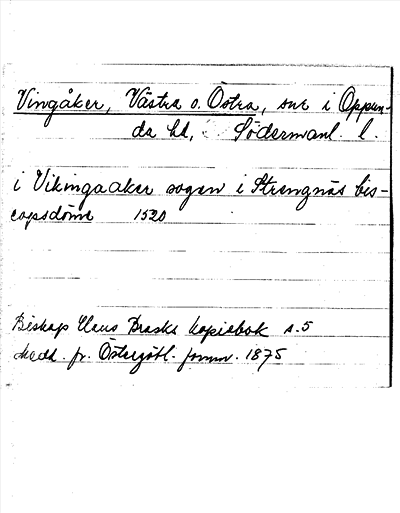 Vingåker, Västra o. Östra, snr i Oppun-
da hd, Södermanl. l.
i Vikingaaker sogen i Strengnäs bis-
copsdöme 1520
Biskop Hans Brasks kopiebok s.5
Medd. fr. Östergötl. fornm. 1875